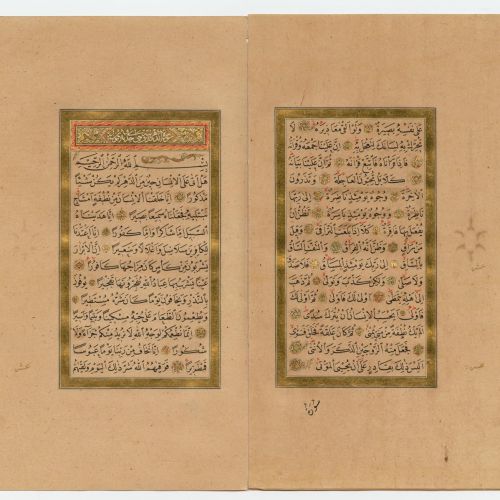 عَلَى نَفْسِهِ بَصِيرَةٌ وَلَوْ أَلْقَى مَعَاذِيرَهُ لَا
تُحَرِّكْ بِهِ لِسَانَكَ لِتَعْجَلَ بِهِ إِنَّ عَلَيْنَا جَمْعَهُ وَقُرْآنَهُ
فَإِذَا قَرَأْنَاهُ فَاتَّبِعْ قُرْآنَهُ ثُمَّ إِنَّ عَلَيْنَا بَيَانَهُ
كَلَّا بَلْ تُحِبُّونَ الْعَاجِلَةَ وَتَذَرُونَ
الْآخِرَةَ وُجُوهٌ يَوْمَئِذٍ نَاضِرَةٌ إِلَى رَبِّهَا
نَاظِرَةٌ وَوُجُوهٌ يَوْمَئِذٍ بَاسِرَةٌ تَظُنُّ أَنْ
يُفْعَلَ بِهَا فَاقِرَةٌ كَلَّا إِذَا بَلَغَتِ التَّرَاقِيَ وَقِيلَ
مَنْ رَاقٍ وَظَنَّ أَنَّهُ الْفِرَاقُ وَالْتَفَّتِ السَّاقُ
بِالسَّاقِ إِلَى رَبِّكَ يَوْمَئِذٍ الْمَسَاقُ فَلَا صَدَّقَ
وَلَا صَلَّى وَلَكِنْ كَذَّبَ وَتَوَلَّى ثُمَّ ذَهَبَ
إِلَى أَهْلِهِ يَتَمَطَّى أَوْلَى لَكَ فَأَوْلَى ثُمَّ أَوْلَى لَكَ
فَأَوْلَى أَيَحْسَبُ الْإِنْسَانُ أَنْ يُتْرَكَ سُدًى
أَلَمْ يَكُ نُطْفَةً مِنْ مَنِيٍّ يُمْنَى ثُمَّ كَانَ عَلَقَةً فَخَلَقَ فَسَوَّى
فَجَعَلَ مِنْهُ الزَّوْجَيْنِ الذَّكَرَ وَالْأُنْثَى
أَلَيْسَ ذَلِكَ بِقَادِرٍ عَلَى أَنْ يُحْيِيَ الْمَوْتَى
سورة
بِسْمِ اللَّهِ الرَّحْمَنِ الرَّحِيمِ
هَلْ أَتَى عَلَى الْإِنْسَانِ حِينٌ مِنَ الدَّهْرِ لَمْ يَكُنْ شَيْئًا
مَذْكُورًا إِنَّا خَلَقْنَا الْإِنْسَانَ مِنْ نُطْفَةٍ أَمْشَاجٍ
نَبْتَلِيهِ فَجَعَلْنَاهُ سَمِيعًا بَصِيرًا إِنَّا هَدَيْنَاهُ
السَّبِيلَ إِمَّا شَاكِرًا وَإِمَّا كَفُورًا إِنَّا أَعْتَدْنَا
لِلْكَافِرِينَ سَلَاسِلَ وَأَغْلَالًا وَسَعِيرًا إِنَّ الْأَبْرَارَ
يَشْرَبُونَ مِنْ كَأْسٍ كَانَ مِزَاجُهَا كَافُورًا
عَيْنًا يَشْرَبُ بِهَا عِبَادُ اللَّهِ يُفَجِّرُونَهَا تَفْجِيرًا يُوفُونَ
بِالنَّذْرِ وَيَخَافُونَ يَوْمًا كَانَ شَرُّهُ مُسْتَطِيرًا
وَيُطْعِمُونَ الطَّعَامَ عَلَى حُبِّهِ مِسْكِينًا وَيَتِيمًا وَأَسِيرًا
إِنَّمَا نُطْعِمُكُمْ لِوَجْهِ اللَّهِ لَا نُرِيدُ مِنْكُمْ جَزَاءً وَلَا
شُكُورًا إِنَّا نَخَافُ مِنْ رَبِّنَا يَوْمًا عَبُوسًا
قَمْطَرِيرًا فَوَقَاهُمُ اللَّهُ شَرَّ ذَلِكَ الْيَوْمِ وَلَقَّاهُمْ